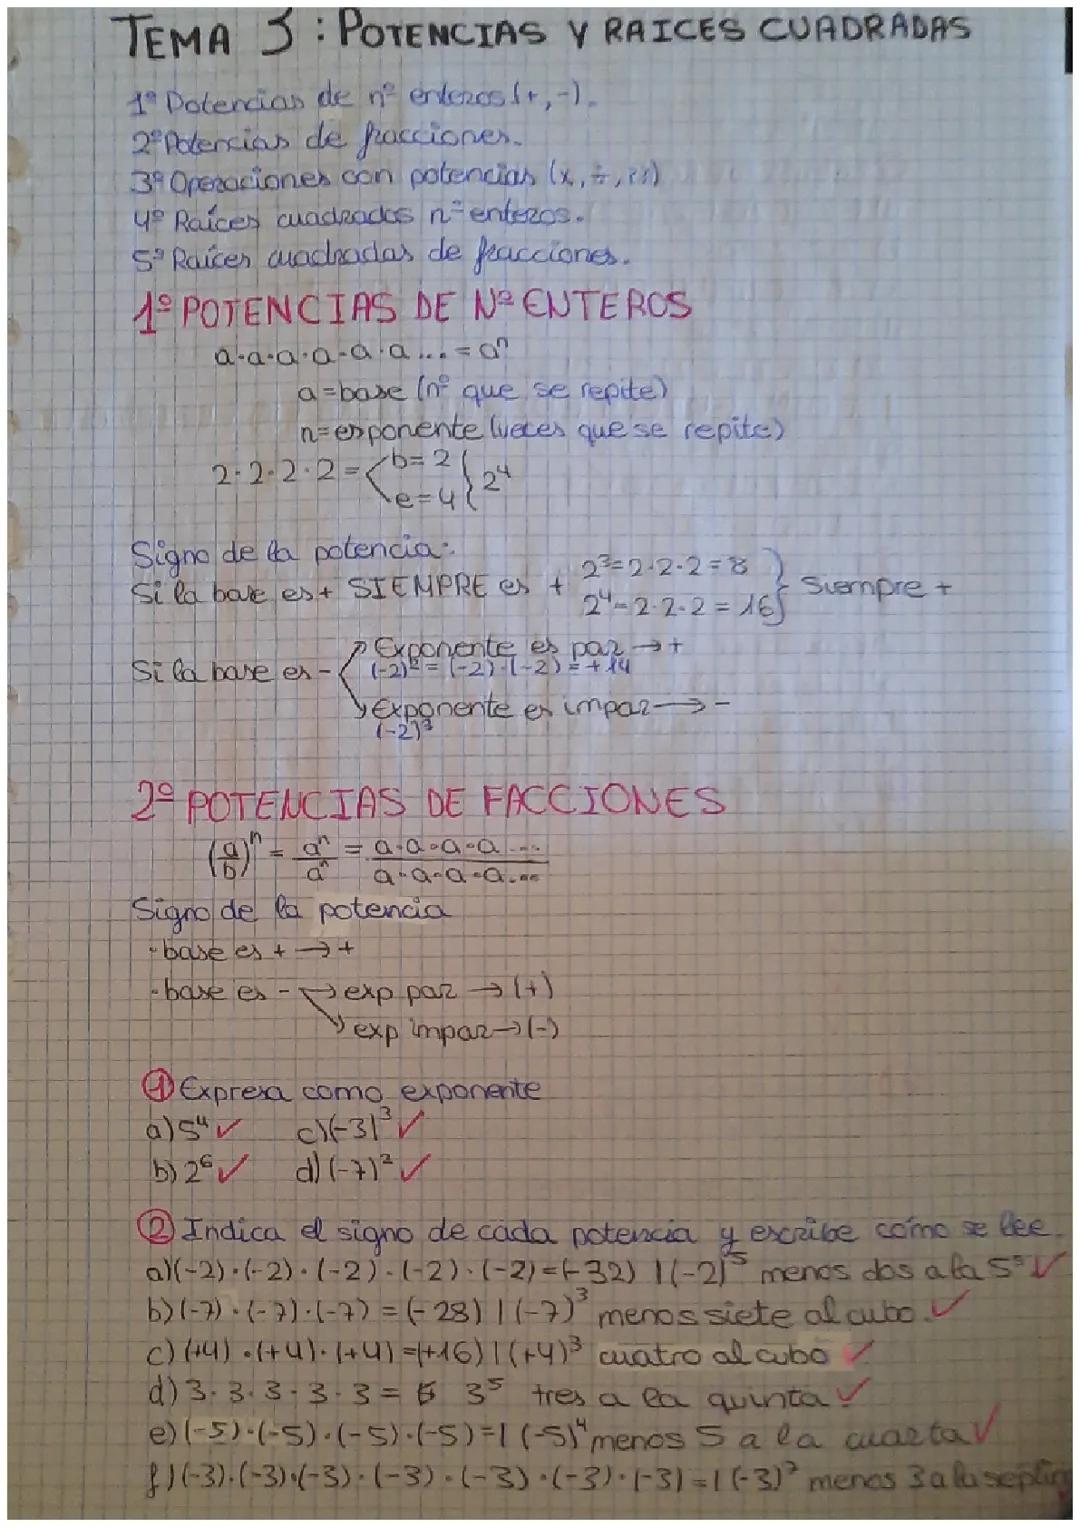 TEMA 3: POTENCIAS Y RAICES CUADRADAS
1º Potencias de nº enteros (+,-).
2º Potencias de fracciones.
3º Operaciones con potencias (x, ÷,
4º Raíces cuadradas nº enteros.
5º Raíces cuadradas de fracciones.
1º POTENCIAS DE Nº ENTEROS
a·a·a·a·a·a... = aⁿ
a=base (nº que se repite)
n=exponente (veces que se repite)
2·2·2·2 = b=2 e=4 } 2⁴
Signo de la potencia:
Si la base es + SIEMPRE es + 2³=2·2·2=8 2⁴=2·2·2=16 } Siempre +
Si la base es - Exponente es par → +
(-2)² = (-2)·(-2) = +14
Exponente es impar → -
(-2)³
2º POTENCIAS DE FACCIONES
(a/b)ⁿ = aⁿ/aⁿ = a·a·a·a.../a·a·a·a...
Signo de la potencia
-base es + → +
-base es - → exp par → (+)
exp impar → (-)
① Expresa como exponente
a) 5⁴ ✓ c) (-3)³ ✓
b) 2⁶ ✓ d) (-7)² ✓
② Indica el signo de cada potencia y escribe cómo se lee.
a) (-2)·(-2)·(-2)·(-2)·(-2) = (-32) | (-2)⁵ menos dos a la 5ª ✓
b) (-7)·(-7)·(-7) = (-28) | (-7)³ menos siete al cubo. ✓
c) (+4)·(+4)·(+4) = (+16) | (+4)³ cuatro al cubo ✓
d) 3·3·3·3·3 = 3⁵ tres a la quinta ✓
e) (-5)·(-5)·(-5)·(-5) = | (-5)⁴ menos 5 a la cuarta ✓
f) (-3)·(-3)·(-3)·(-3)·(-3)·(-3)·(-3) = | (-3)⁷ menos 3 a la